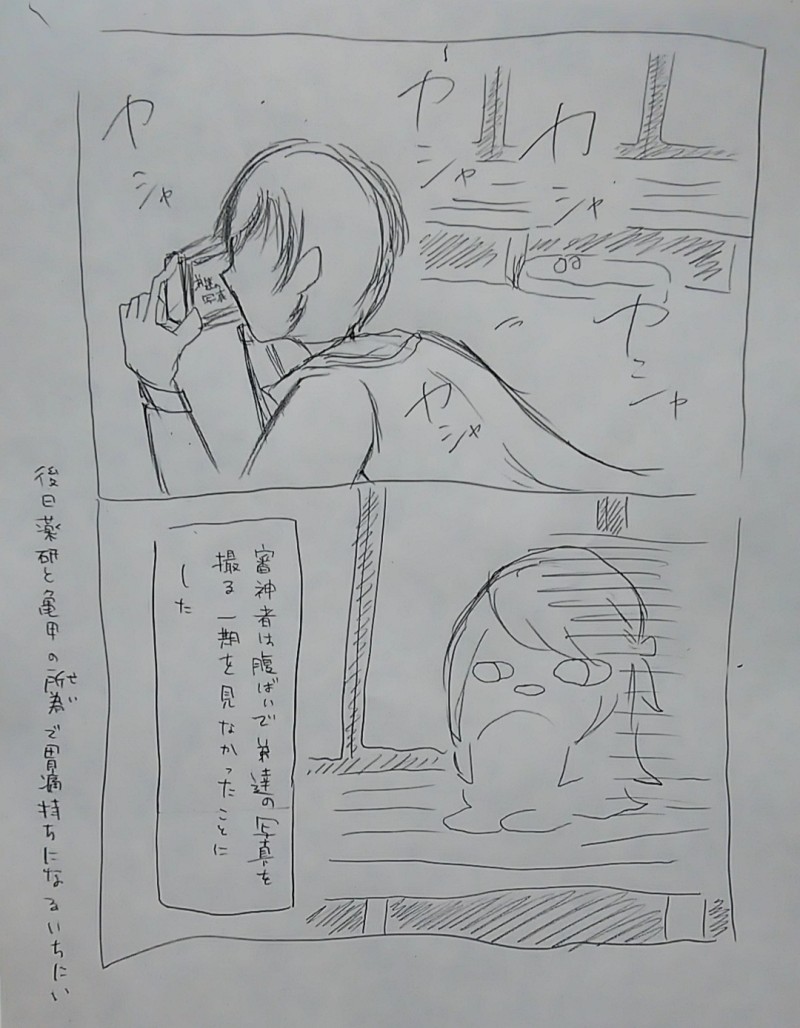 カシャ
カシャ
カシャ
カシャ
カシャ
弟達の
写真
審神者は腹ばいで弟達の写真を
撮る一期を見なかったことに
した
後日薬研と亀甲の所為で胃痛持ちになるいちにい
せい